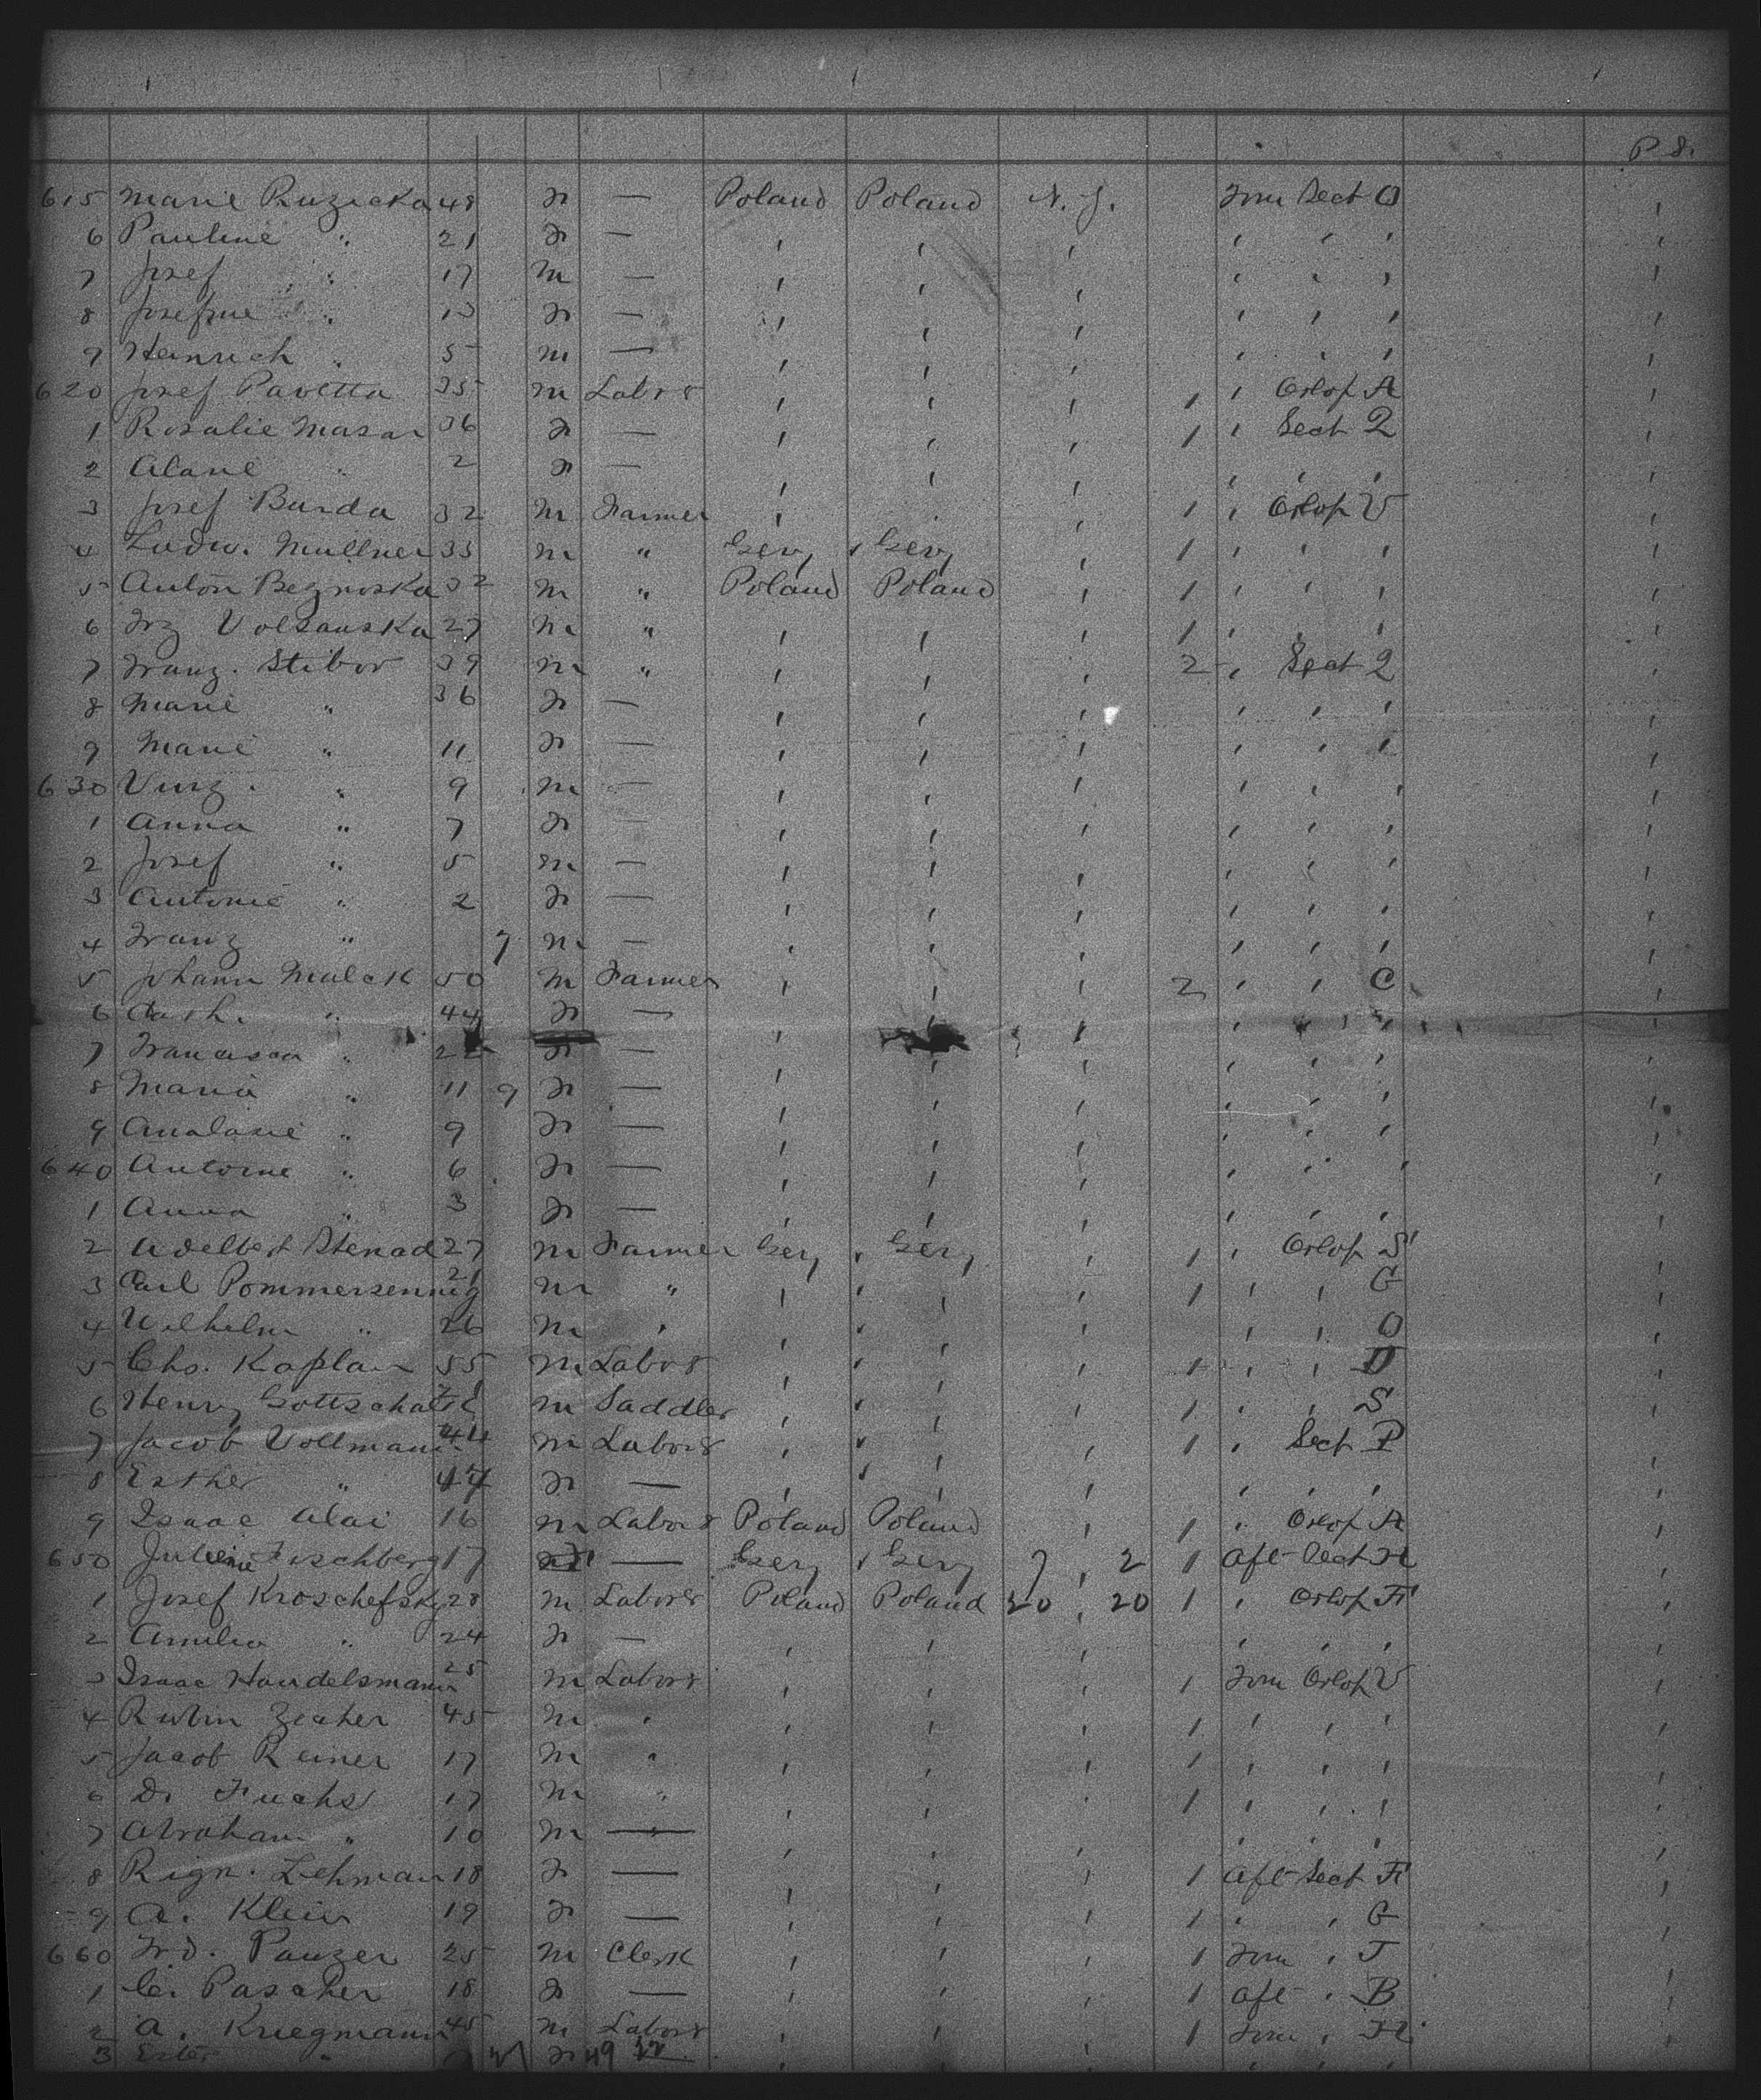 P. S.
615 Marie Ruzicka 48 F — Poland Poland N.Y. Forw Sect O
6 Pauline " 21 F — , , , , , , ,
7 Josef " 17 M — , , , , , , ,
8 Josefine " F — , , , , , , ,
9 Heinrich " 5 M — , , , , , , ,
620 Josef Pavetta 35 M Labor , , , 1 , Orlop A ,
1 Rosalie Masar 36 F — , , , 1 , Sect Q ,
2 " 2 F — , , , , , , ,
3 Josef Burda 32 M Farmer , , 1 , Orlop V ,
4 Ludw. Mullner 35 M " Gery , Gery , 1 , , , ,
5 Anton 32 M " Poland Poland , 1 , , , ,
6 Frz 27 M " , , , 1 , , , ,
7 Franz. Stibor 39 M " , , , 2 , Sect Q ,
8 Marie " 36 F — , , , , , , ,
9 Marie " 11 F — , , , , , , ,
630 Vinz. " 9 M — , , , , , , ,
1 Anna " 7 F — , , , , , , ,
2 Josef " 5 M — , , , , , , ,
3 Antonie " 2 F — , , , , , , ,
4 Franz " 7 M — , , , , , , ,
5 Johann Malek 50 M Farmer , , , 2 , , C ,
6 Cath. " 44 F — , , , , , , ,
7 " 22 F — , , , , , , ,
8 Maria " 11 9 F — , , , , , , ,
9 " 9 F — , , , , , , ,
640 Antonie " 6 F — , , , , , , ,
1 Anna " 3 F — , , , , , , ,
2 Adelbert 27 M Farmer Gery , Gery , 1 , Orlop S ,
3 Carl Pommersennig 21 M " , , , , 1 , , G ,
4 Wilhelm " 26 M , , , , , , , O ,
5 Chs. Kaplan 55 M Labor , , , , 1 , , D ,
6 Henry Gottschalk M Saddler , , , , 1 , , S ,
7 Jacob Vollmann 44 M Labor , , , , 1 , Sect P ,
8 Esther " F — , , , , , , , ,
9 Isaac 16 M Labor Poland Poland , 1 , Orlop A ,
650 Fischberg 17 F — Gery , Gery 7 , 2 1 Aft Sect H ,
1 Josef Kroschefsky 28 M Labor Poland Poland 20 , 20 1 , Orlop F ,
2 Amilia " 24 F — , , , , , , ,
3 Isaac Handelsmann 25 M Labor , , , 1 Forw Orlop V ,
4 Rubin Zecher 45 M , , , , 1 , , , ,
5 Jacob Reiner 17 M , , , , 1 , , , ,
6 D. Fuchs 17 M , , , , 1 , , , ,
7 Abraham " 10 M — , , , , , , ,
8 Lehman 18 F — , , , 1 Aft Sect F ,
9 A. Klein 19 F — , , , 1 , , G ,
660 Frd. Panzer 25 M Clerk , , , 1 Forw , T ,
1 C. Pascher 18 F — , , , 1 Aft , B ,
2 A. Kriegmann 45 M Labor , , , 1 Forw , H ,
3 Ester " F — , , , , , , ,